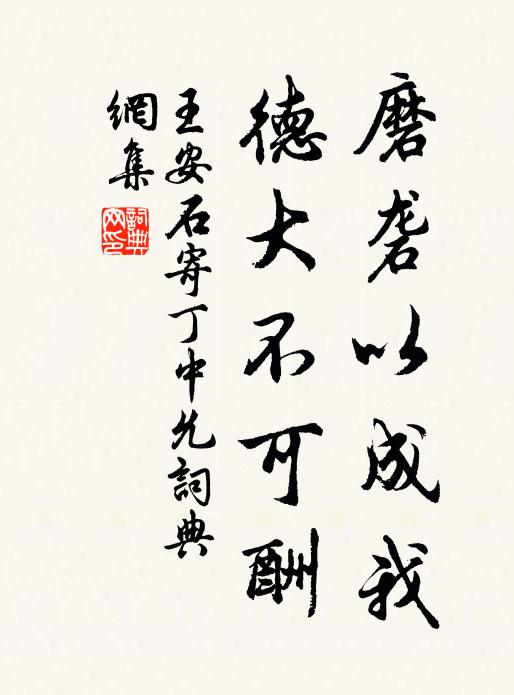 磨砻以成我
德大不可酬
王安石寄丁中允詞典
網集
詞典
网印